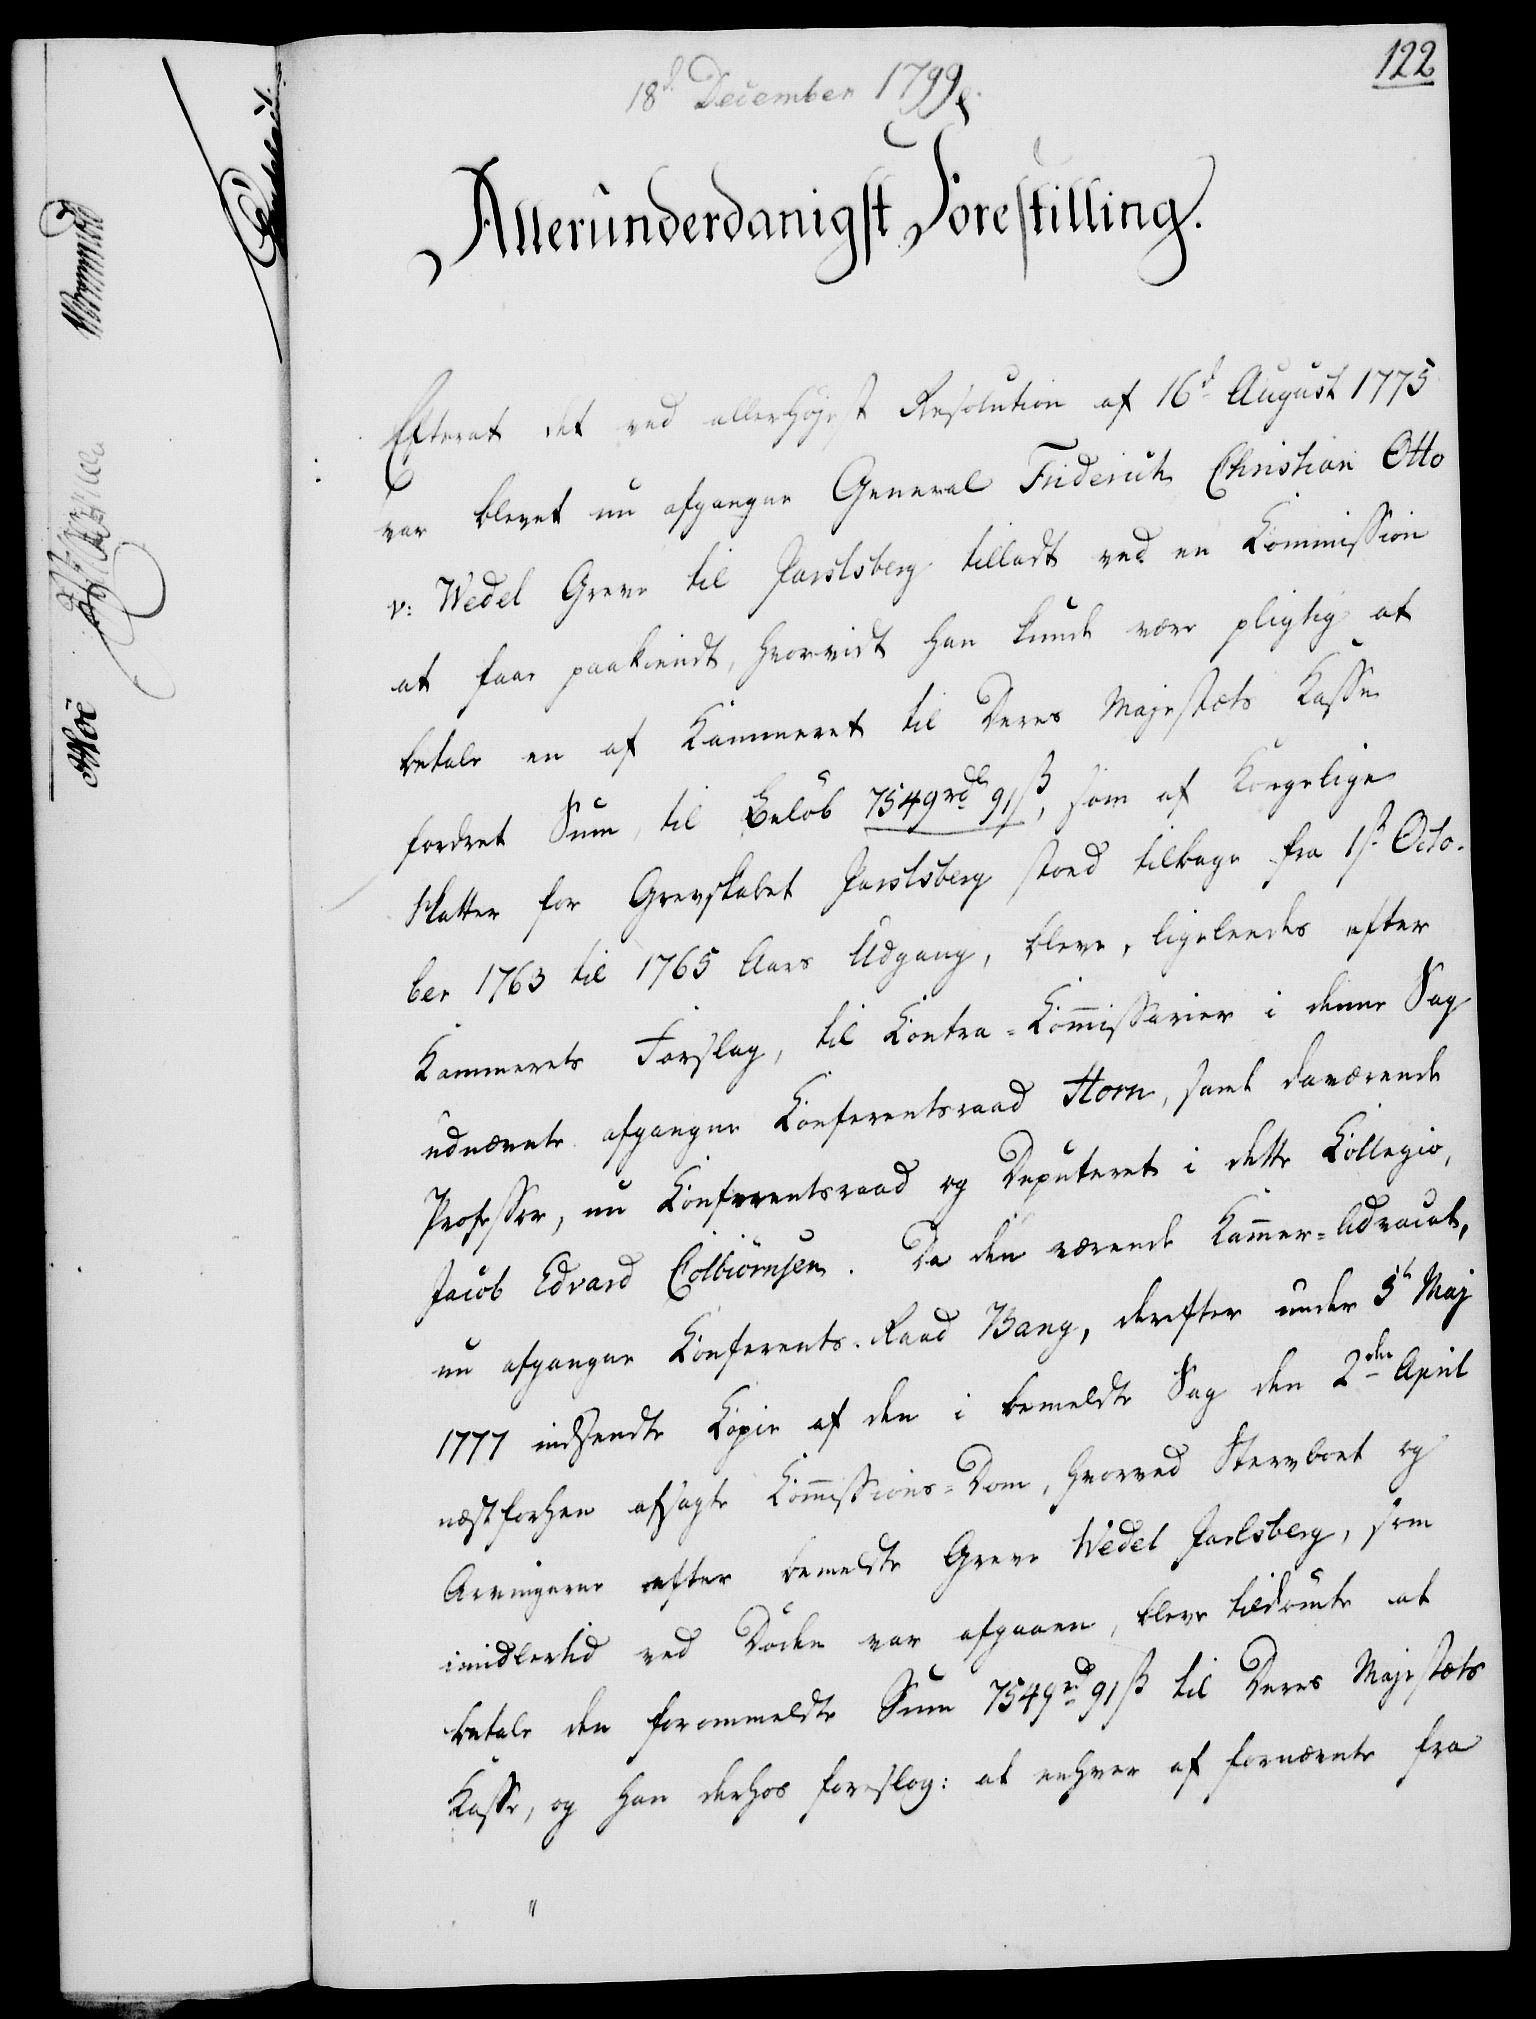 122
18d December 1799.
Allerunderdanigst Forestilling.
Efterat det ved allerhöjest Resolution af 16d August 1775
var blevet nu afgangne General Friderich Christian Otto
v: Wedel Greve til Jarlsberg tilladt ved en Commission
at faae paakiendt, hvorvidt han kunde være pligtig at
betale en af Kammeret til Deres Majestæts Kasse
fordret Sum, til Beløb 7549rdlr 91ß, som af Kongelige
Skatter for Grevskabet Jarlsberg stoed tilbage fra 1ste Octo-
ber 1763 til 1765 Aars Udgang, bleve, ligeleedes efter
Kammerets Forslag, til Contra-Commissarier i denne Sag
udnævnte afgangne Conferentsraad Horn, samt daværende
Professor, nu Conferentsraad og Deputeret i dette Collegio,
Jacob Edvard Colbiörnsen. Da den værende Kammer-Advocat,
nu afgangne Conferents-Raad Bang, derefter under 5t Maj
1777 indsendte Copie af den i bemeldte Sag den 2den April
næstforhen afsagte Commissions-Dom, hvorved Stervboet og
Arvingerne efter bemeldte Greve Wedel Jarlsberg, som
imidlertid ved Döden var afgaaen, bleve tildömte at
betale den forommeldte Sum 7549rd 91ß til Deres Majestæts
Kasse, og han derhos foreslog: at enhver af fornævnte fra